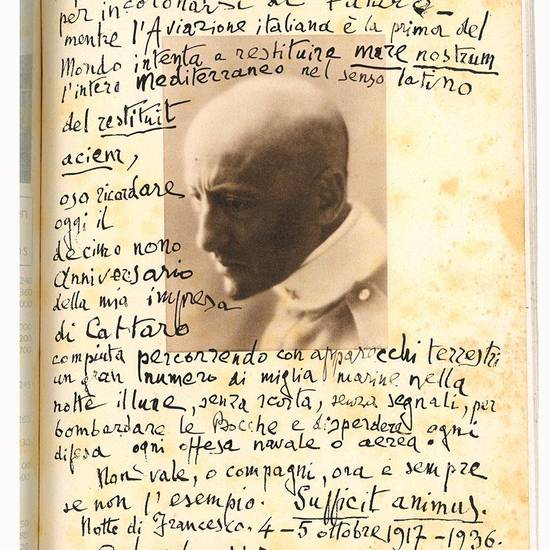 per incoronarsi di
mentre l'Aviazione italiana è la prima del
Mondo intenta a restituire mare nostrum
l'intero Mediterraneo nel senso latino
del restituit
aciem,
oso ricordare
oggi il
decimo nono
Anniversario
della mia impresa
di Cattaro
compiuta percorrendo con apparecchi terrestri
un gran numero di miglia marine nella
notte illune, senza scorta, senza segnali, per
bombardare le Bocche e disperdere ogni
difesa ogni offesa navale o aerea.
Non vale, o compagni, ora e sempre
se non l'esempio. Sufficit animus.
Notte di Francesco. 4-5 ottobre 1917-1936.